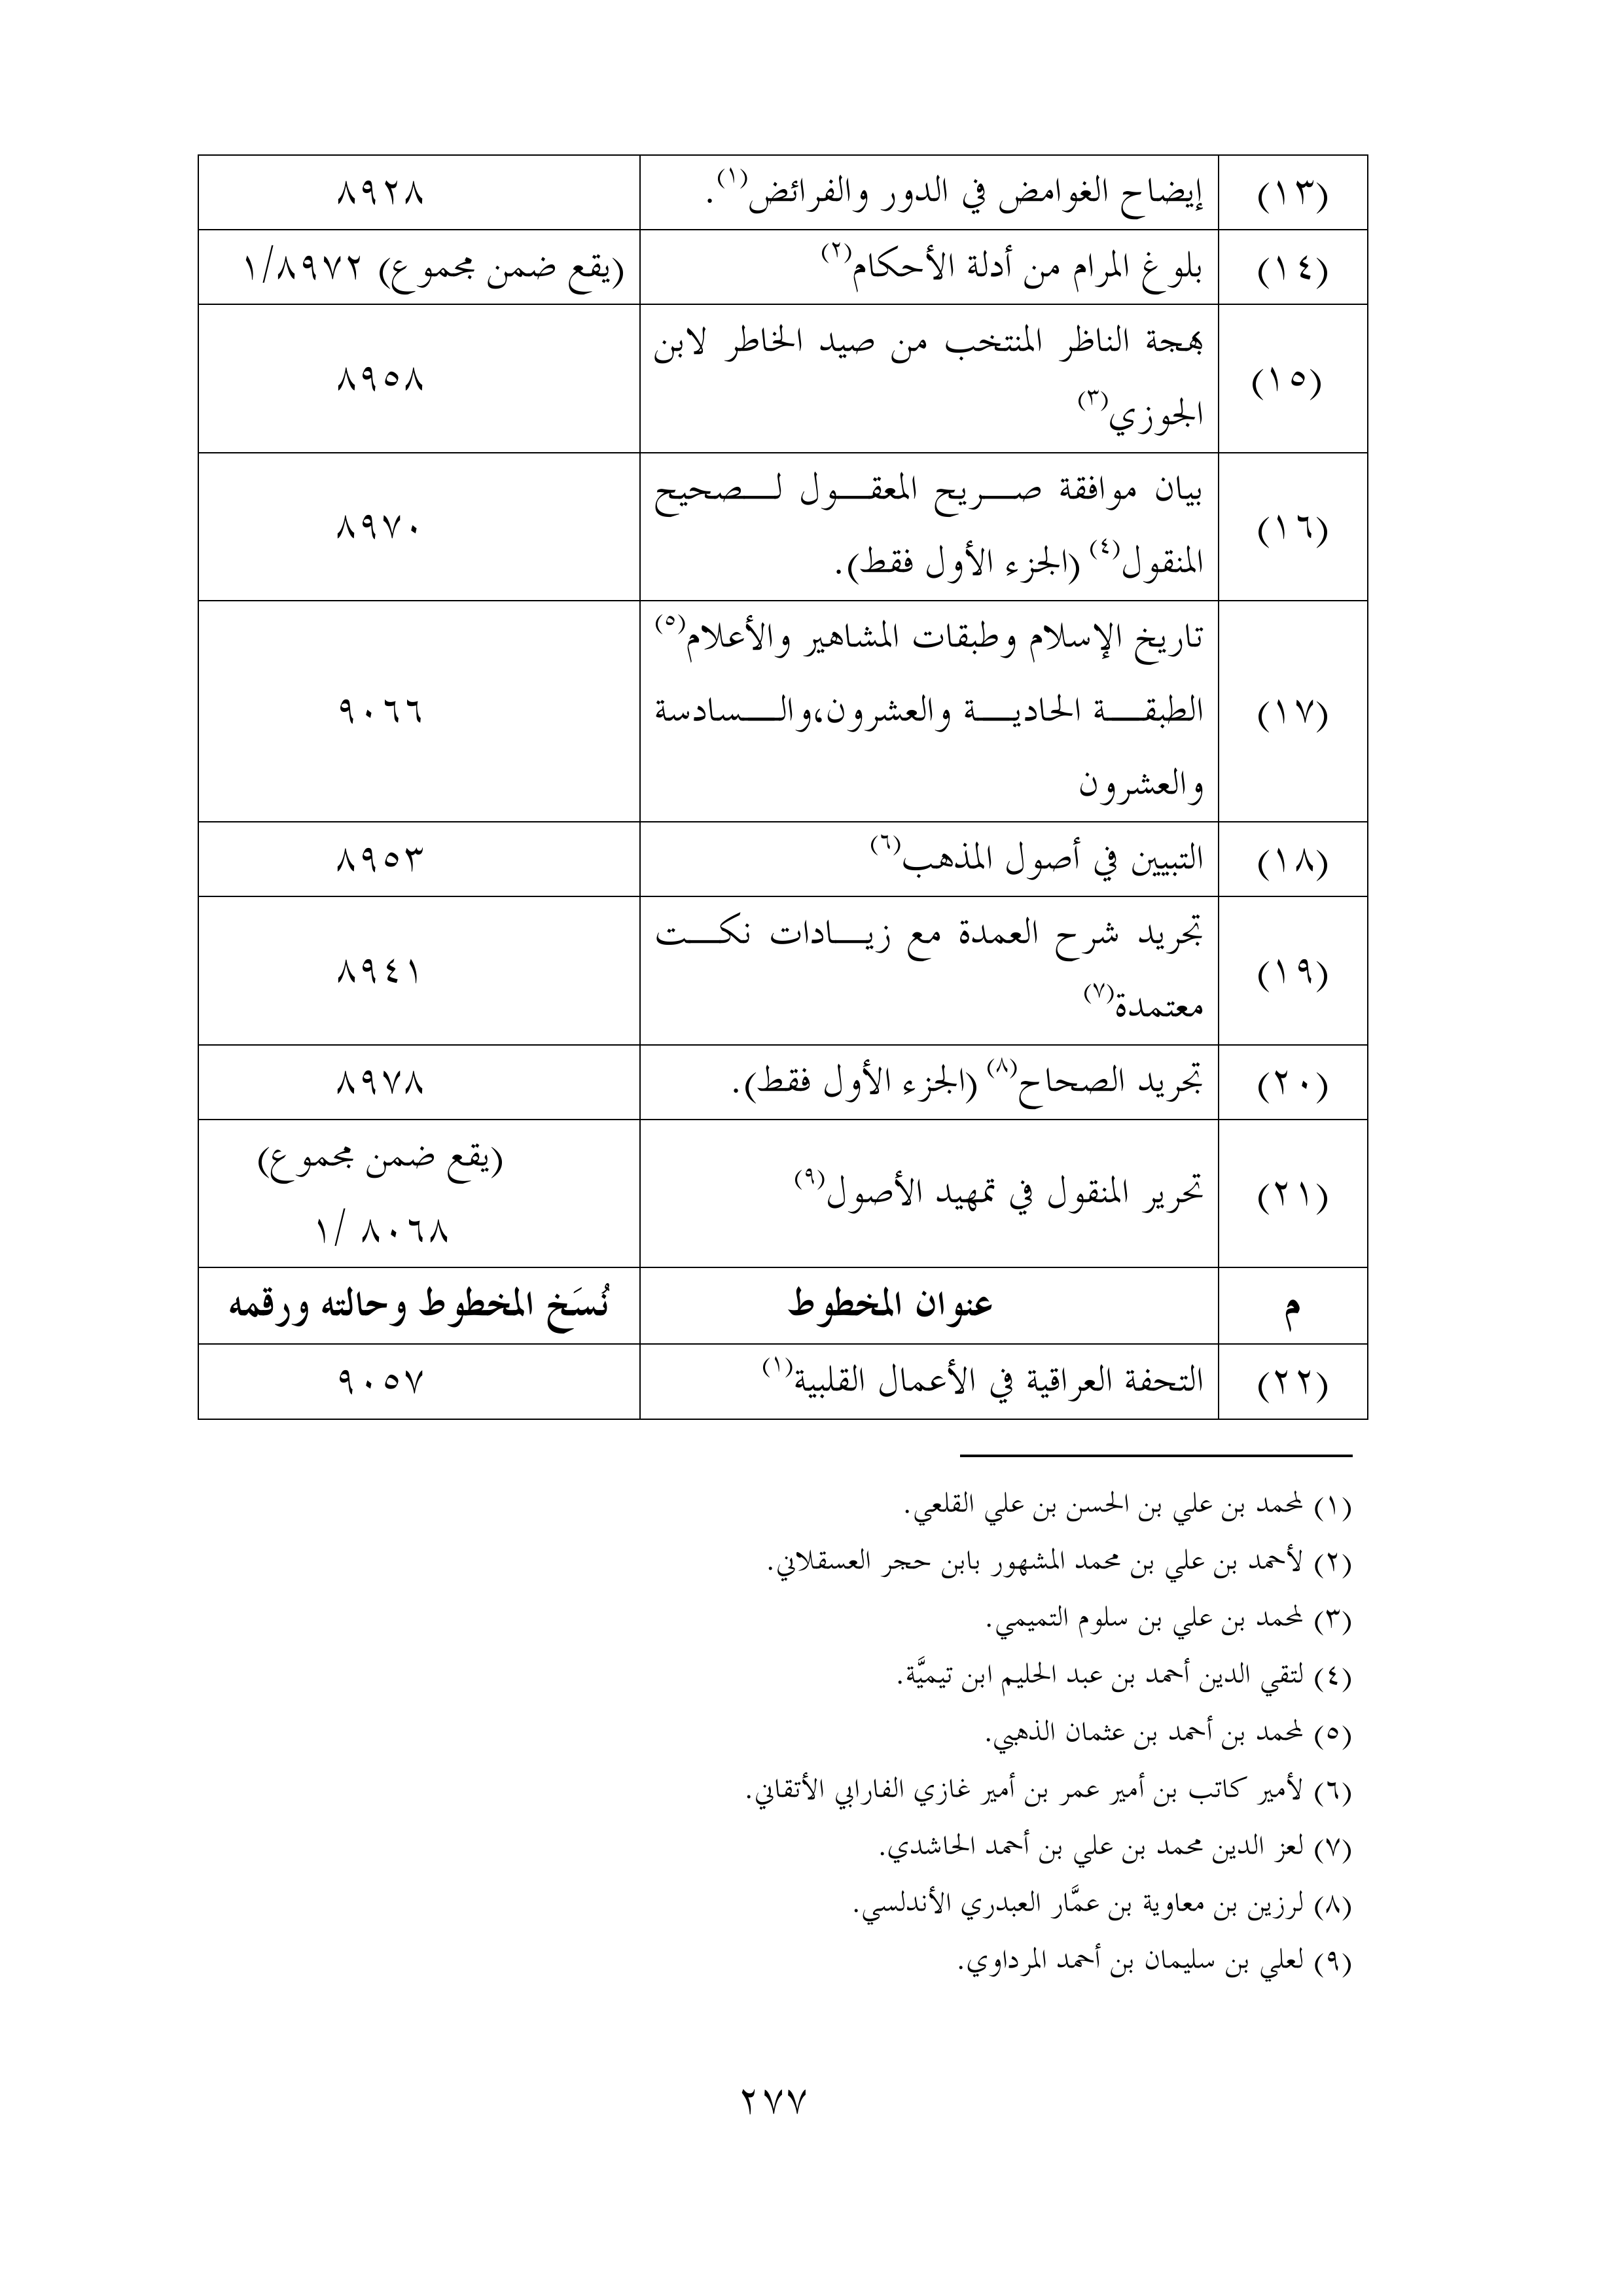 (١٣) إيضاح الغوامض في الدور والفرائض(١). ٨٩٢٨
(١٤) بلوغ المرام من أدلة الأحكام(٢) (يقع ضمن مجموع) ١/٨٩٧٢
(١٥) بهجة الناظر المنتخب من صيد الخاطر لابن
الجوزي(٣) ٨٩٥٨
(١٦) بيان موافقة صريح المعقول لصحيح
المنقول(٤) (الجزء الأول فقط). ٨٩٧٠
(١٧) تاريخ الإسلام وطبقات المشاهير والأعلام(٥)
الطبقة الحادية والعشرون،والسادسة
والعشرون ٩٠٦٦
(١٨) التبيين في أصول المذهب(٦) ٨٩٥٣
(١٩) تجريد شرح العمدة مع زيادات نكت
معتمدة(٧) ٨٩٤١
(٢٠) تجريد الصحاح(٨) (الجزء الأول فقط). ٨٩٧٨
(٢١) تحرير المنقول في تمهيد الأصول(٩) (يقع ضمن مجموع)
٨٠٦٨ /١
م عنوان المخطوط نُسَخ المخطوط وحالته ورقمه
(٢٢) التحفة العراقية في الأعمال القلبية(١) ٩٠٥٧
(١) لمحمد بن علي بن الحسن بن علي القلعي.
(٢) لأحمد بن علي بن محمد المشهور بابن حجر العسقلاني.
(٣) لمحمد بن علي بن سلوم التميمي.
(٤) لتقي الدين أحمد بن عبد الحليم ابن تيميَّة.
(٥) لمحمد بن أحمد بن عثمان الذهبي.
(٦) لأمير كاتب بن أمير عمر بن أمير غازي الفارابي الأتقاني.
(٧) لعز الدين محمد بن علي بن أحمد الحاشدي.
(٨) لرزين بن معاوية بن عمَّار العبدري الأندلسي.
(٩) لعلي بن سليمان بن أحمد المرداوي.
٢٧٧